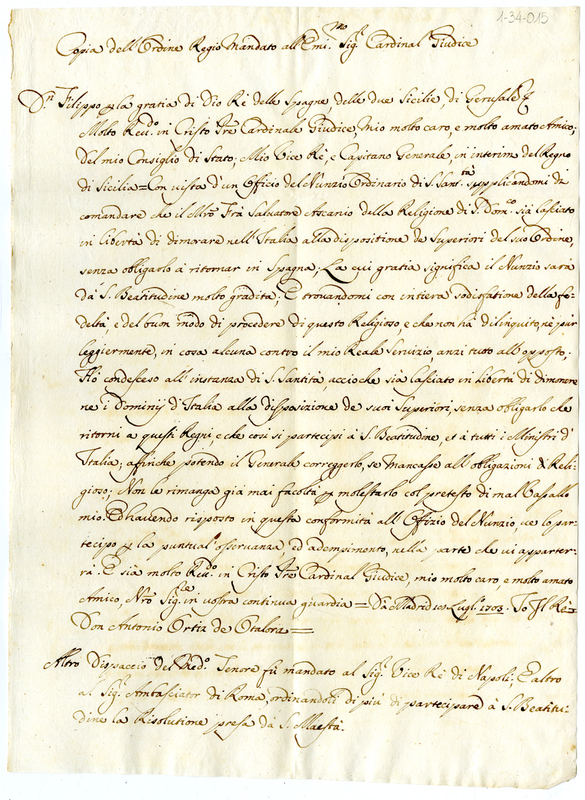 1-34-015
Copia dell'Ordine Regio Mandato all'Em.mo Sig.r Cardinal Giudice
D.n Filippo p la gratia di Dio Rè delle Spagne delle due Sicilie, di Gerusale &
Molto Reu.do in Cristo Pre Cardinale Giudice, Mio molto caro, e molto amato Amico,
Del mio Consiglio di Stato; Mio Vice Rè, e Capitano Generale, in interim del Regno
di Sicilia = Con vista d'un Officio del Nunzio Ordinario di S. Sant.tà supplicandomi di
comandare che il Mro Frà Salvatore Ascanio della Religione di S. Dom.co sia lasciato
in Libertà di dimorare nell'Italia alla dispositione de Superiori del suo Ordine,
senza obligarlo à ritornar in Spagna; La cui gratia significa il Nunzio sarà
dà S. Beatitudine molto gradita; E trovandomi con intiera sodisfatione della fe-
deltà, e del buon modo di procedere di questo Religioso, e che non hà dilinquito, nè pur
leggiermente, in cosa alcuna contro il mio Reale Servizio, anzi tutto all'opposto.
Hò condesceso all'instanza di S. Santità, acciò che sia lasciato in Libertà di dimorare
ne i Dominij d'Italia alla disposizione de suoi Superiori, senza obligarlo che
ritorni a questi Regni, e che così si partecipi à S. Beatitudine, et à tutti i Ministri d'
Italia; affinche potendo il Generale correggerlo, se Mancasse all'obligazioni di Reli-
gioso; Non le rimanga già mai facoltà p molestarlo col pretesto di mal Vasallo
mio. Ed havendo risposto in questa conformità all'Offizio del Nunzio, ve lo par-
tecipo p la puntual' osservanza, ed adempimento, nella parte che vi apparter-
rà. E sia molto Reu.do in Cristo Pre Cardinal Giudice, mio molto caro, e molto amato
Amico, Nro Sig.re in vostra continua guardia = Da Madrid Lugl.o 1703. Io Il Rè =
Don Antonio Ortiz de Otalora =
Altro Dispaccio del Med.o Tenore fù mandato al Sig.r Vice Rè di Napoli; E altro
al Sig.r Ambasciator di Roma, ordinandoli di più di partecipare à S. Beatitu-
dine la Risolutione presa dà S. Maestà.